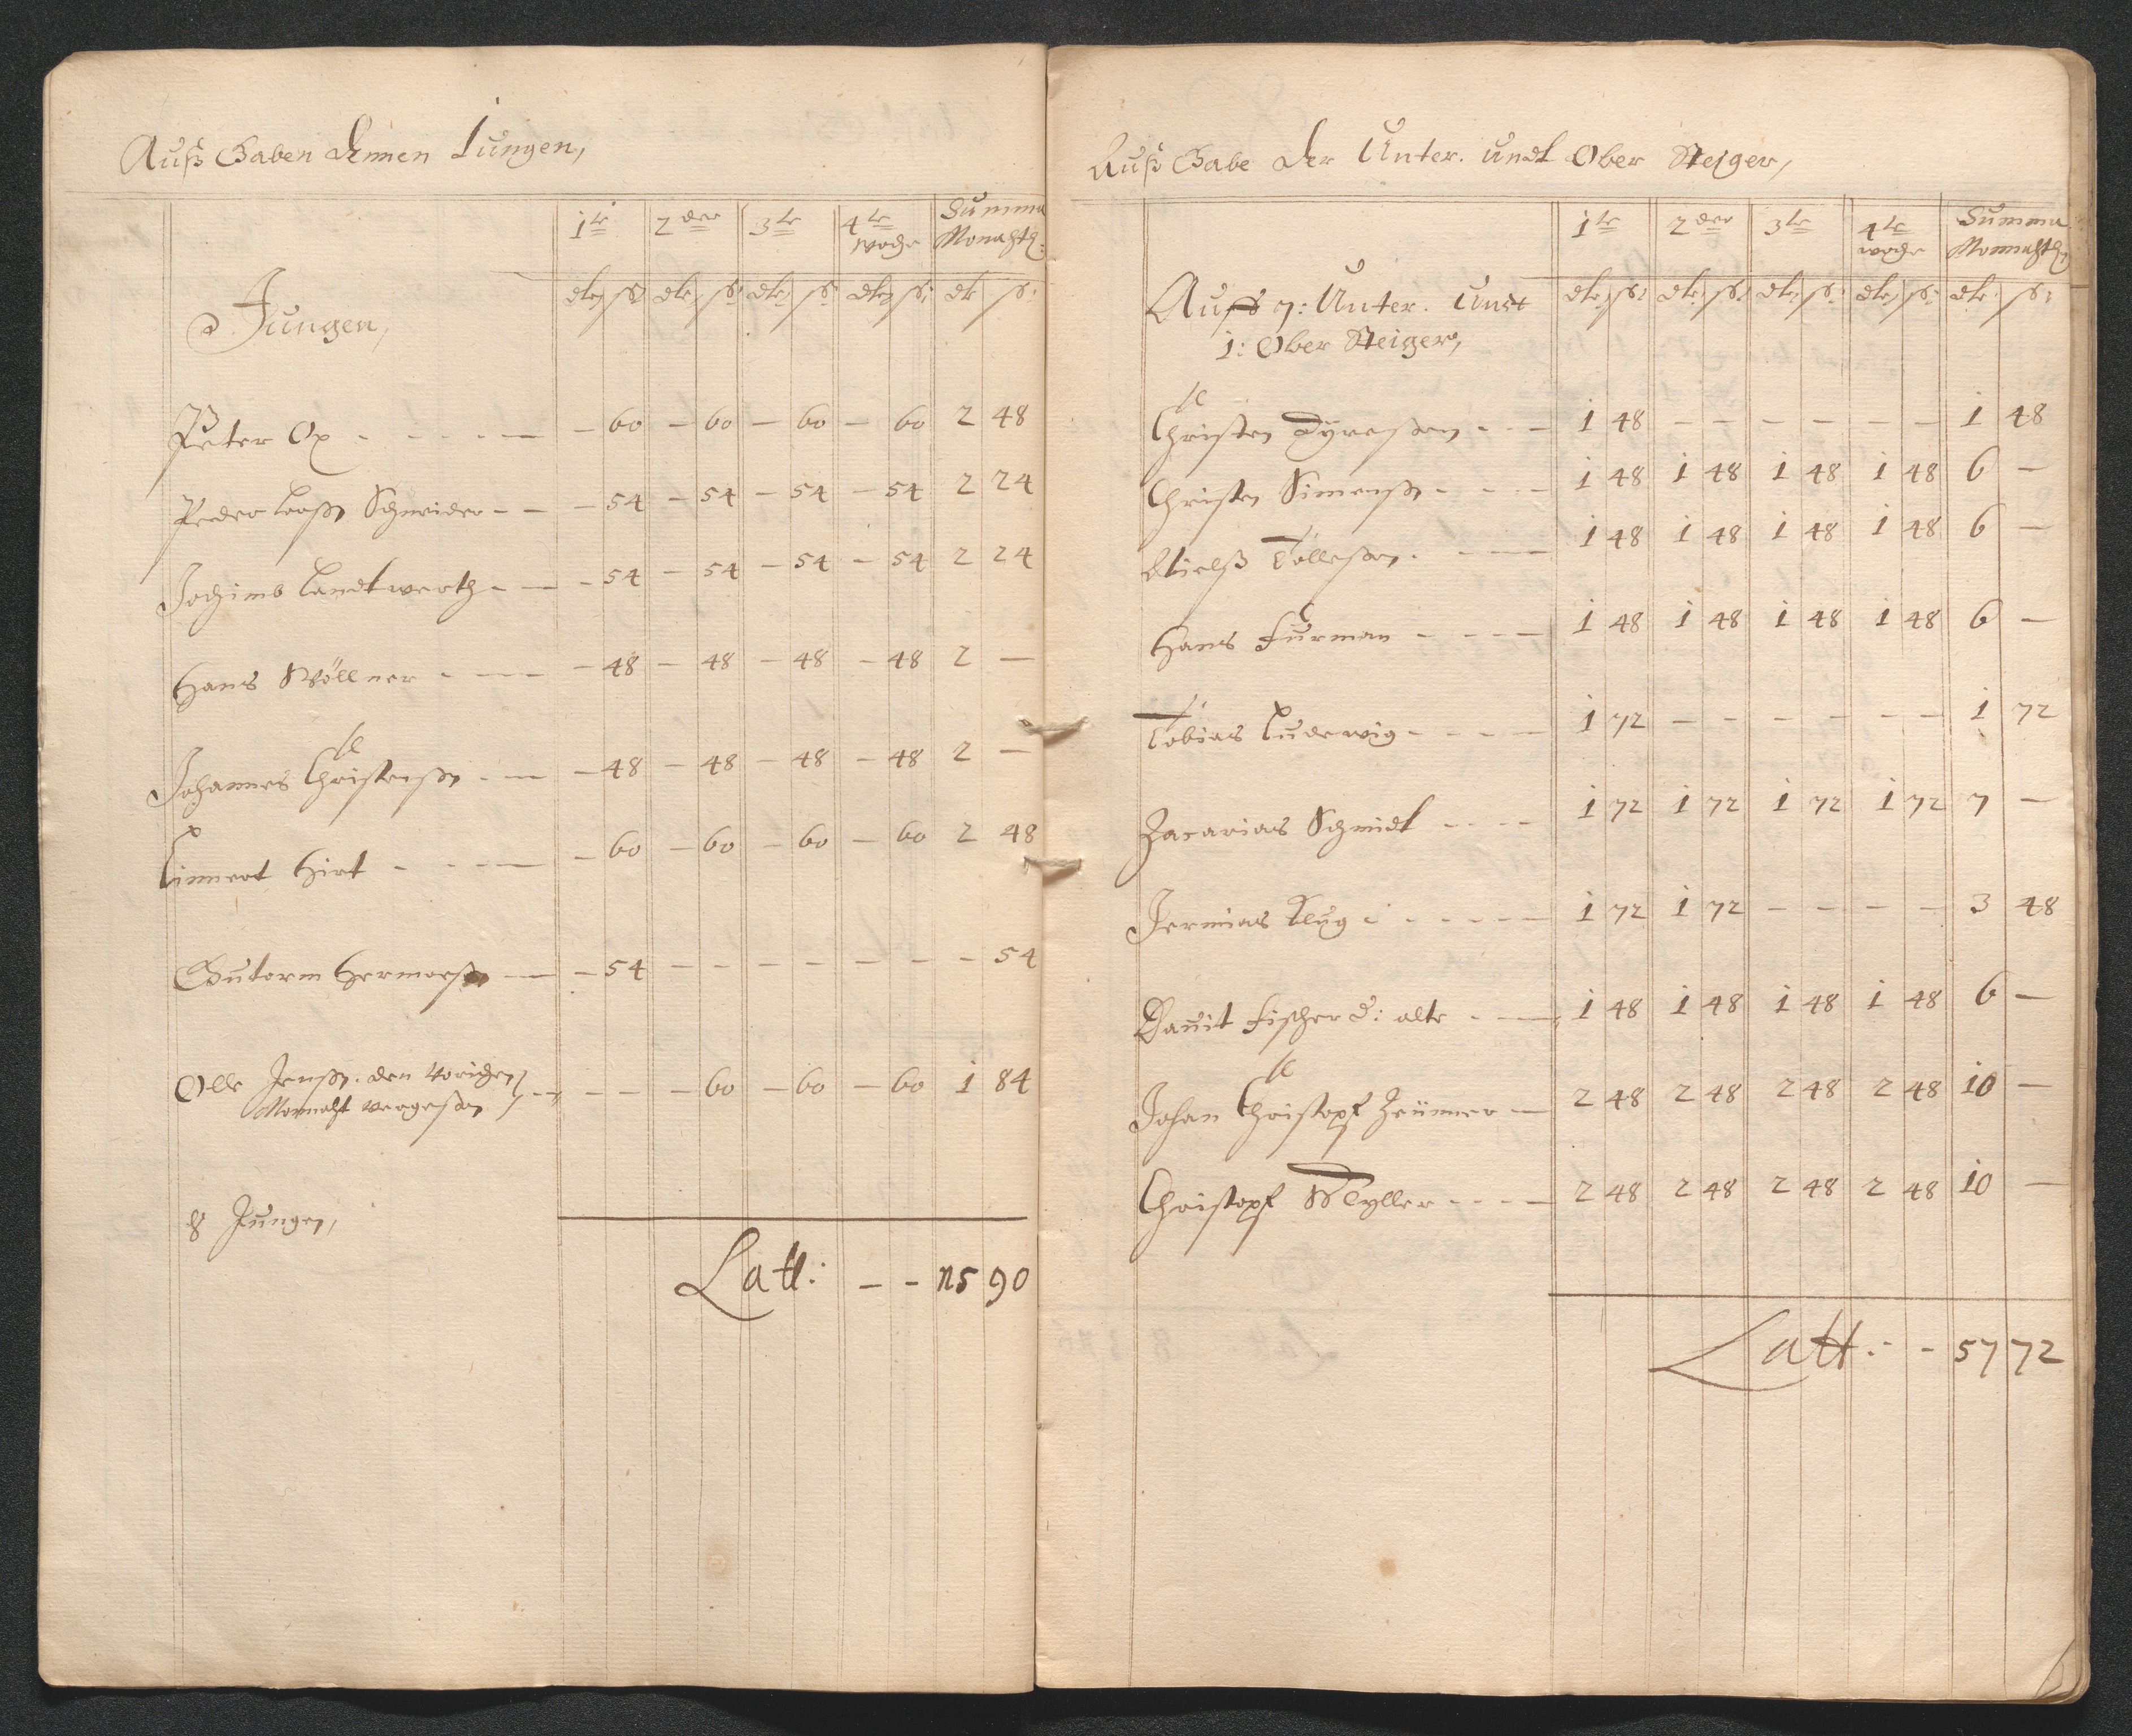 Auß Gaben denen Jungen,
1te 2der 3te 4te woche Summa Monahtl:
Jungen,
dlr ß dlr ß dlr ß dlr ß dlr ß
Peter Ox - - - - - 60 - 60 - 60 - 60 2 48
Peder Larßen Schneider - - - 54 - 54 - 54 - 54 2 24
Jochimb Landtwerth - - - 54 - 54 - 54 - 54 2 24
Hans Wöllner - - - 48 - 48 - 48 - 48 2 -
Johannes Christenßen - - - 48 - 48 - 48 - 48 2 -
Linnert Hirt - - - - 60 - 60 - 60 - 60 2 48
Gutorm - - 54 - - - - - - - 54
Olle Jenßen. den Vorigen
Monaht vergeßen - - - - 60 - 60 - 60 1 84
8 Jungen,
Latt: - - 15 90
Auß Gabe der Unter. undt Ober Steiger,
1te 2der 3te 4te woche Summa Monnahtl:
Auff 7: Unter. Undt
1: Ober Steiger,
dlr ß dlr ß dlr ß dlr ß dlr ß
Christen Dyreßen - - - 1 48 - - - - - - 1 48
Christen Simenßen - - - 1 48 1 48 1 48 1 48 6 -
Nielß Tölleßen - - - 1 48 1 48 1 48 1 48 6 -
Hans Furman - - - - 1 48 1 48 1 48 1 48 6 -
Tobias Ludewig - - - - 1 72 - - - - - - 1 72
Zacarias Schmidt - - - - 1 72 1 72 1 72 1 72 7 -
Jermias Klug - - - - - 1 72 1 72 - - - - 3 48
Davit Fischer d: alte - - - 1 48 1 48 1 48 1 48 6 -
Johan Christopf Zeümer - 2 48 2 48 2 48 2 48 10 -
Christopf - - - - 2 48 2 48 2 48 2 48 10 -
Latt: - - 57 72